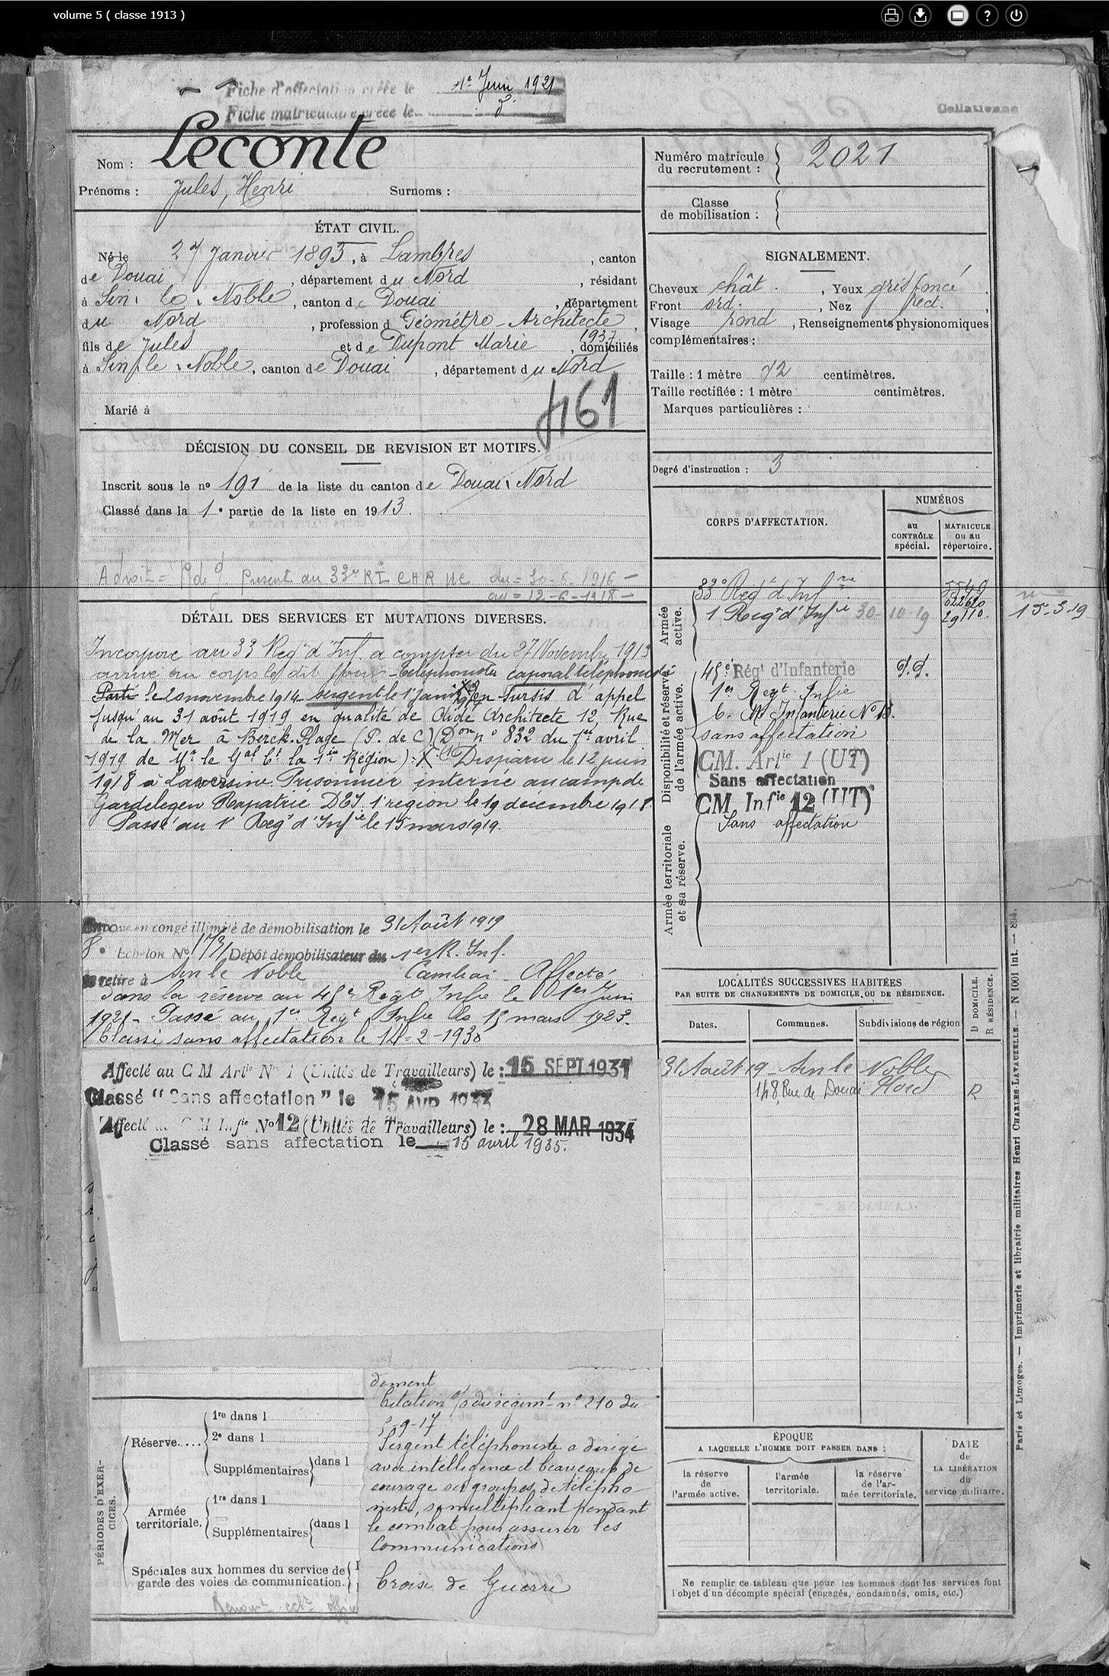 volume 5 ( classe 1913 )
Fiche d'affectation créée le 1er Juin 1921
Fiche matriculaire créée le
Collationné
Leconte
Nom :
Prénoms : Jules, Henri Surnoms :
Numéro matricule du recrutement : 2021
Classe de mobilisation :
ÉTAT CIVIL.
Né le 27 Janvier 1893, à Lambres, canton
de Douai, département du Nord, résidant
à Sin-le-Noble, canton de Douai, département
du Nord, profession d Géomètre-Architecte,
fils de Jules et de Dupont Marie, domiciliés
1937
à Sin-le-Noble, canton de Douai, département du Nord
Marié à
461
SIGNALEMENT.
Cheveux chât., Yeux gris foncé,
Front ord., Nez rect.,
Visage rond, Renseignements physionomiques
complémentaires :
Taille : 1 mètre 72 centimètres.
Taille rectifiée : 1 mètre centimètres.
Marques particulières :
Degré d'instruction : 3
DÉCISION DU CONSEIL DE REVISION ET MOTIFS.
Inscrit sous le n° 191 de la liste du canton de Douai-Nord
Classé dans la 1e partie de la liste en 1913.
présent au 33e RI du = 30-6-1916 -
au = 12-6-1918 -
CORPS D'AFFECTATION.
NUMÉROS
au CONTRÔLE spécial.
MATRICULE ou au répertoire.
Armée active.
33e Régt d'Infrie
1 Régt d'Infie 30-10-19
15-3-19
Disponibilité et réserve de l'armée active.
45e Régt d'Infanterie
1er Regt Infie
sans affectation
CM. Artie 1 (UT)
Sans affectation
CM. Infie 12 (UT)
Sans affectation
Armée territoriale et sa réserve.
DÉTAIL DES SERVICES ET MUTATIONS DIVERSES.
Incorporé au 33 Régt d'Inf. à compter du 27 Novembre 1913
arrivé au corps le dit jour - téléphoniste caporal téléphoniste
le 20 novembre 1914 sergent le 1 Janv. en sursis d'appel
jusqu'au 31 août 1919 en qualité de Aide Architecte 12, Rue
de la Mer à Berck-Plage (P. de C) (Don n° 832 du 1er avril
1919 de Mr le Gal Ct la 1re Région) : X Disparu le 12 juin
1918 à Laversine Prisonnier interné au camp de
Gardelegen Rapatrié DSI 1 région le 19 décembre 1918
Passé au 1r Régt d'Infie le 15 mars 1919.
Envoyé en congé illimité de démobilisation le 31 Août 1919
8e Echelon N° Dépôt démobilisateur du 1er R. Inf.
se retire à Sin le Noble
Cambrai - Affecté
dans la réserve au 45e Régt Infie le 1er Juin
1921 - Passé au 1er Regt Infie le 15 mars 1923.
Classé sans affectation le 14-2-1930
Affecté au C M Artie N° 1 (Unités de Travailleurs) le : 15 SEPT 1931
Classé "Sans affectation" le 15 AVR
Affecté au C M Infie N° 12 (Unités de Travailleurs) le : 28 MAR 1934
Classé sans affectation le 15 avril 1935.
LOCALITÉS SUCCESSIVES HABITÉES
PAR SUITE DE CHANGEMENTS DE DOMICILE OU DE RÉSIDENCE.
D DOMICILE.
R RÉSIDENCE.
Dates. Communes. Subdivisions de région
31 Août 19 - Sin le Noble
148, Rue de Douai Nord R
dement
Citation o/ du régimt n° 210 du
5-9-17
Sergent téléphoniste a dirigé
avec intelligence et beaucoup de
courage ses groupes de télépho
nistes, se multipliant pendant
le combat pour assurer les
communications
Croix de Guerre
PÉRIODES D'EXERCICES.
Réserve....
1re dans l
2e dans l
Supplémentaires dans l
Armée territoriale.
1re dans l
Supplémentaires dans l
Spéciales aux hommes du service de
garde des voies de communication.
ÉPOQUE
A LAQUELLE L'HOMME DOIT PASSER DANS :
la réserve de l'armée active.
l'armée territoriale.
la réserve de l'armée territoriale.
DATE de LA LIBÉRATION du service militaire.
Ne remplir ce tableau que pour les hommes dont les services font
l'objet d'un décompte spécial (engagés, condamnés, omis, etc.)
Paris et Limoges. — Imprimerie et librairie militaires Henri CHARLES-LAVAUZELLE. — N 1001 int. —